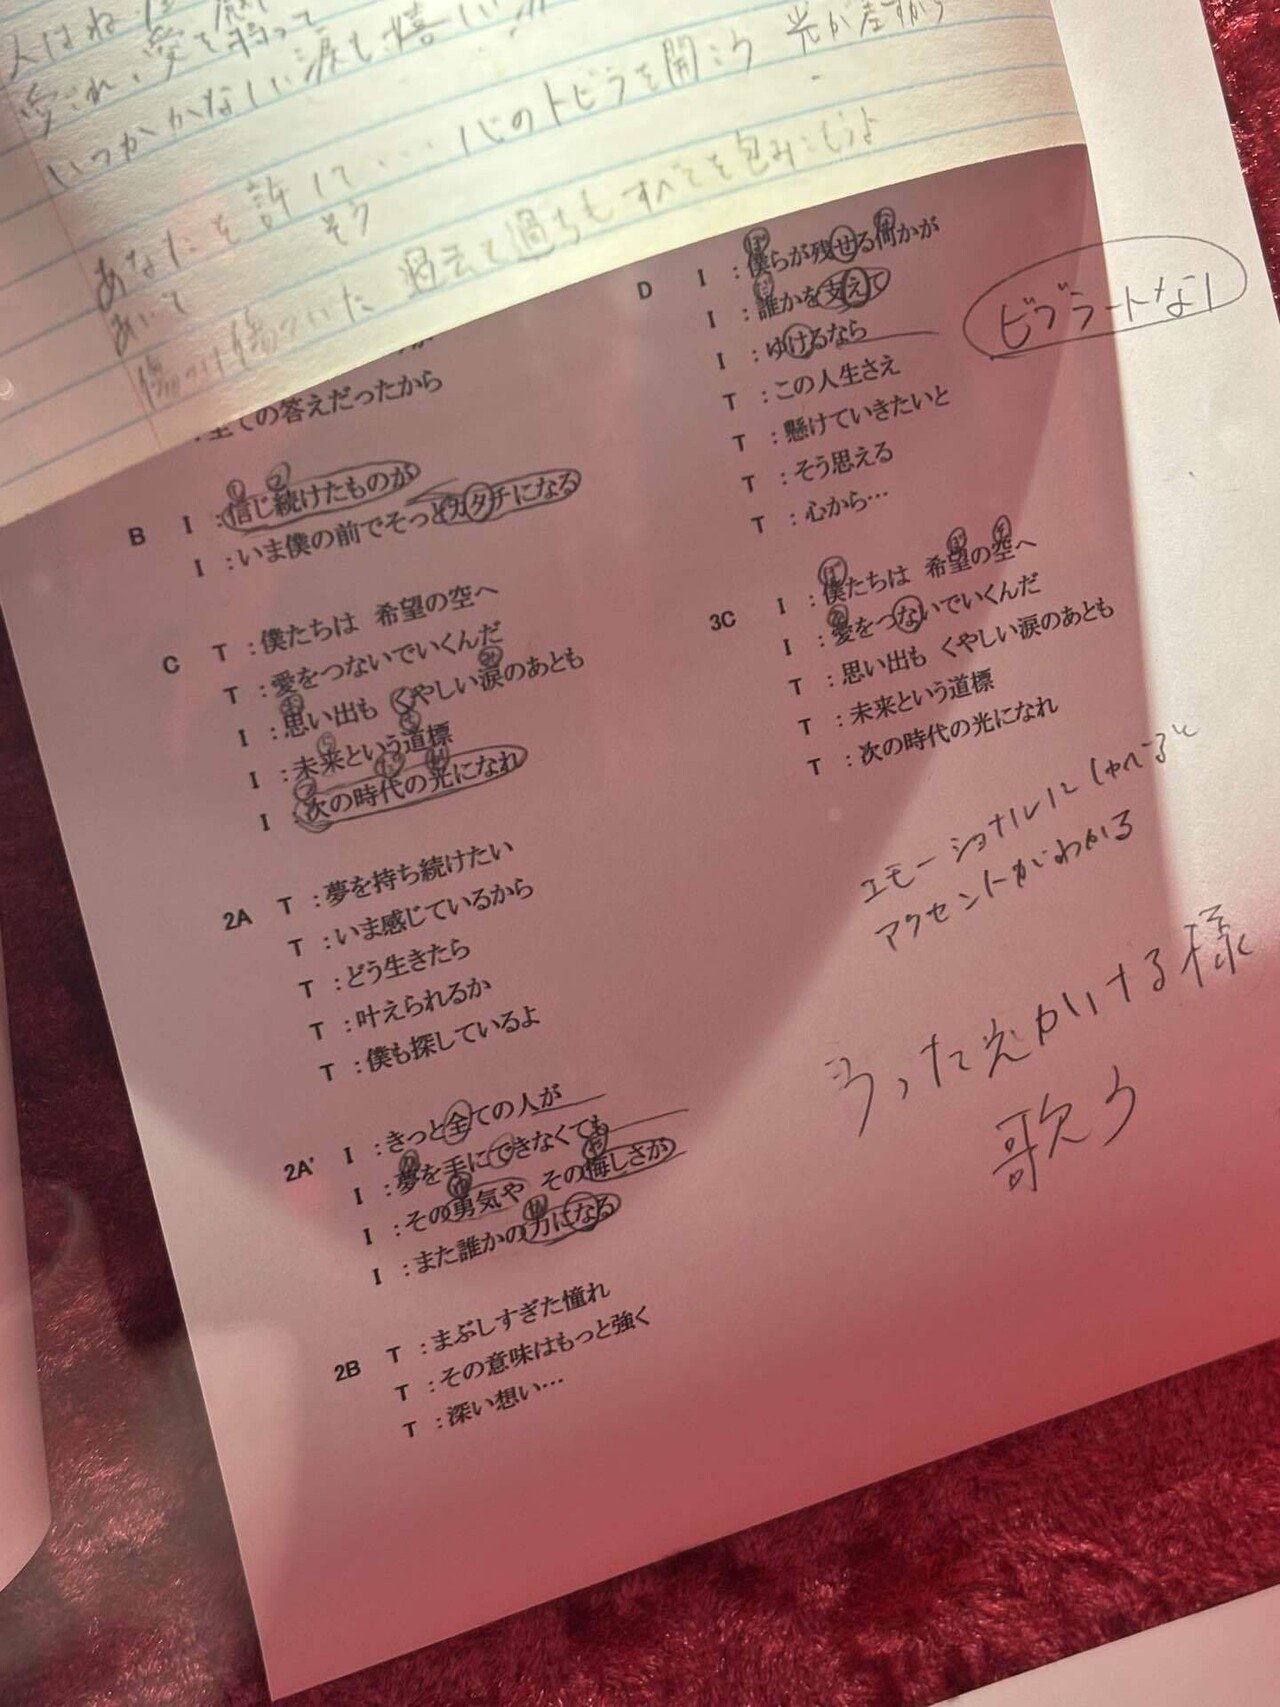 人はね
愛され、愛を
いつかかなしい涙も嬉しい
あなたを許して・・・心のトビラを開こう 光が差すから
そう
傷つけ傷ついた 過去も過ちもすべてを包みこもうよ
全ての答えだったから
B I :信じ続けたものが
I :いま僕の前でそっとカタチになる
C T :僕たちは 希望の空へ
T :愛をつないでいくんだ
I :思い出も くやしい涙のあとも
I :未来という道標
I :次の時代の光になれ
2A T :夢を持ち続けたい
T :いま感じているから
T :どう生きたら
T :叶えられるか
T :僕も探しているよ
2A' I :きっと全ての人が
I :夢を手にできなくても
I :その勇気や その悔しさが
I :また誰かの力になる
2B T :まぶしすぎた憧れ
T :その意味はもっと強く
T :深い想い…
D I :僕らが残せる何かが
I :誰かを支えて
I :ゆけるなら
T :この人生さえ
T :懸けていきたいと
T :そう思える
T :心から…
ビブラートなし
3C I :僕たちは 希望の空へ
I :愛をつないでいくんだ
T :思い出も くやしい涙のあとも
T :未来という道標
T :次の時代の光になれ
エモーショナルにしゃべると
アクセントがわかる
うったえかける様
歌う